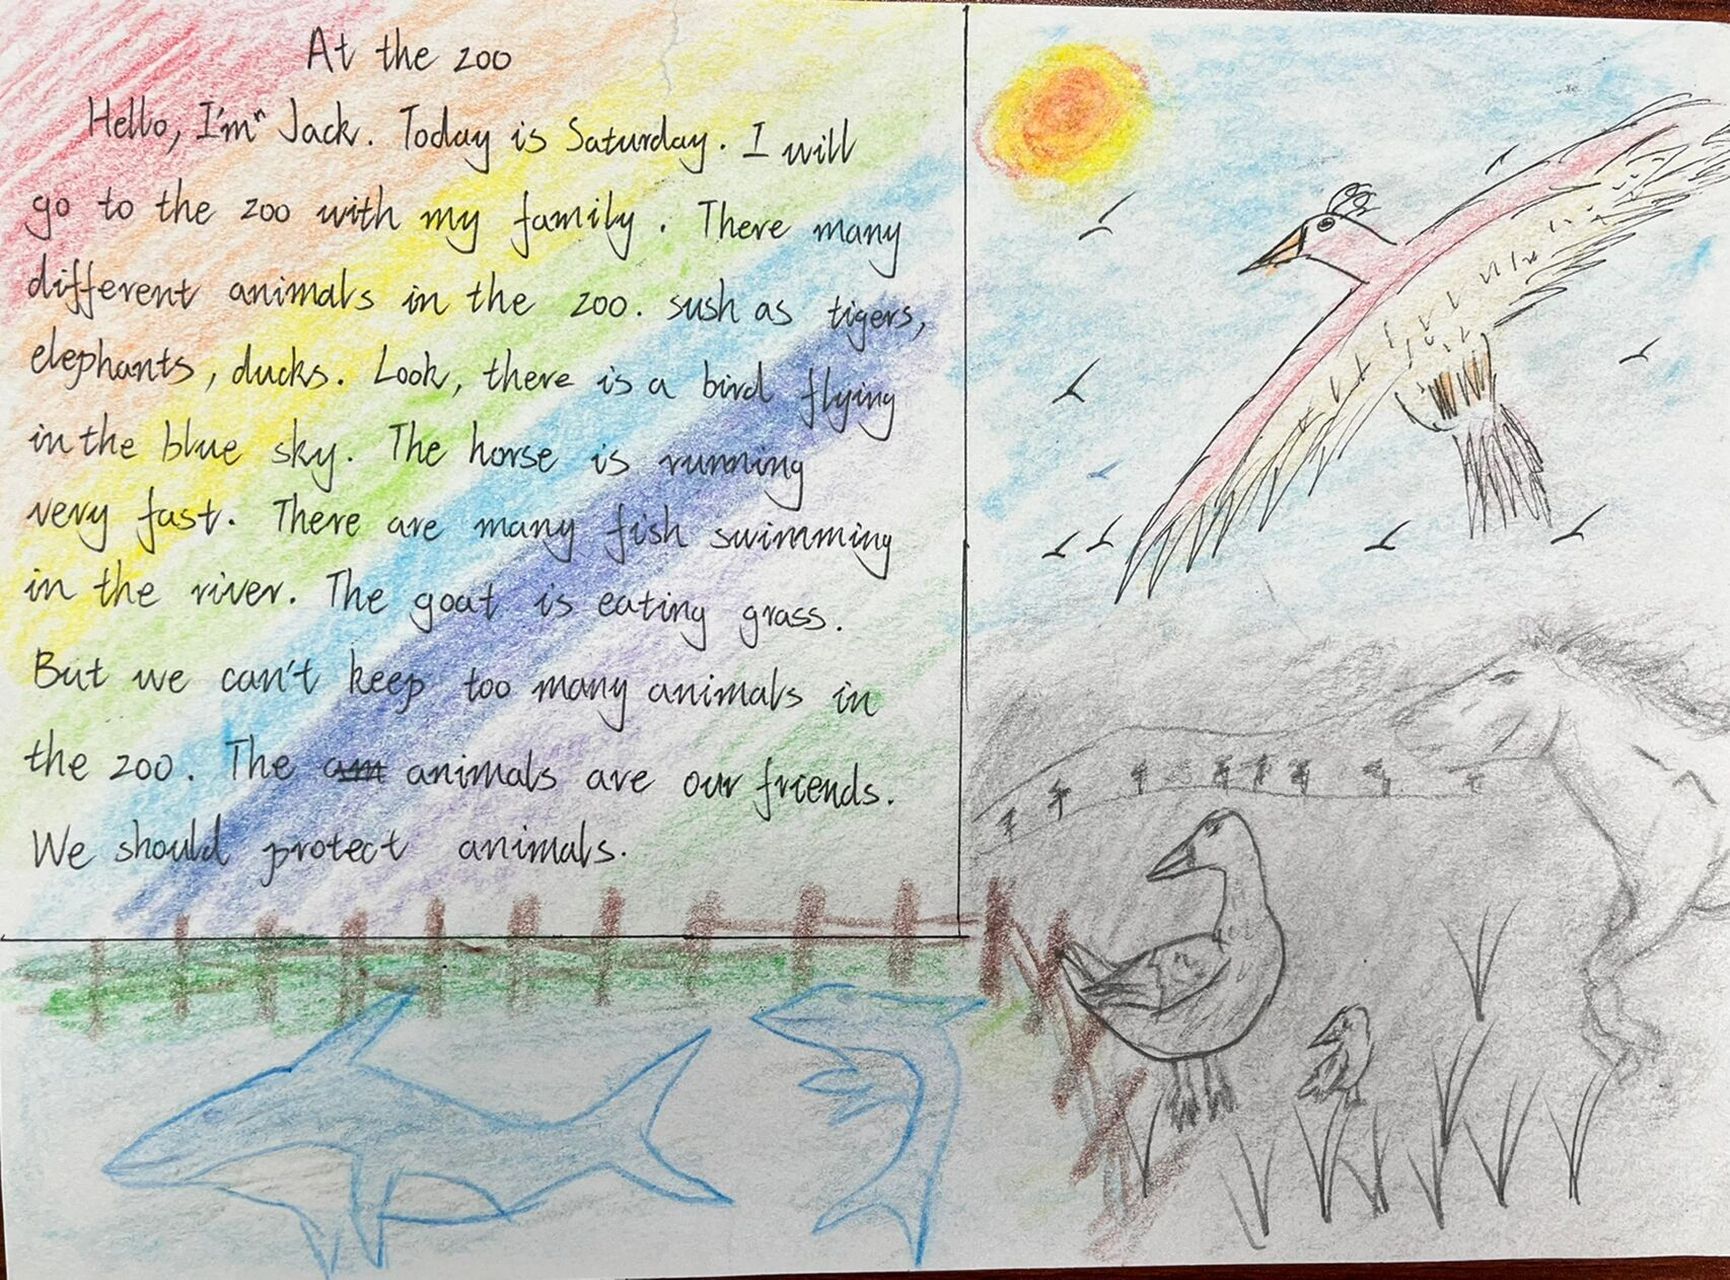 At the zoo
Hello, I'm" Jack. Today is Saturday. I will
go to the zoo with my family. There many
different animals in the zoo. sush as tigers,
elephants, ducks. Look, there is a bird flying
in the blue sky. The horse is running
very fast. There are many fish swimming
in the river. The goat is eating grass.
But we can't keep too many animals in
the zoo. The am animals are our friends.
We should protect animals.